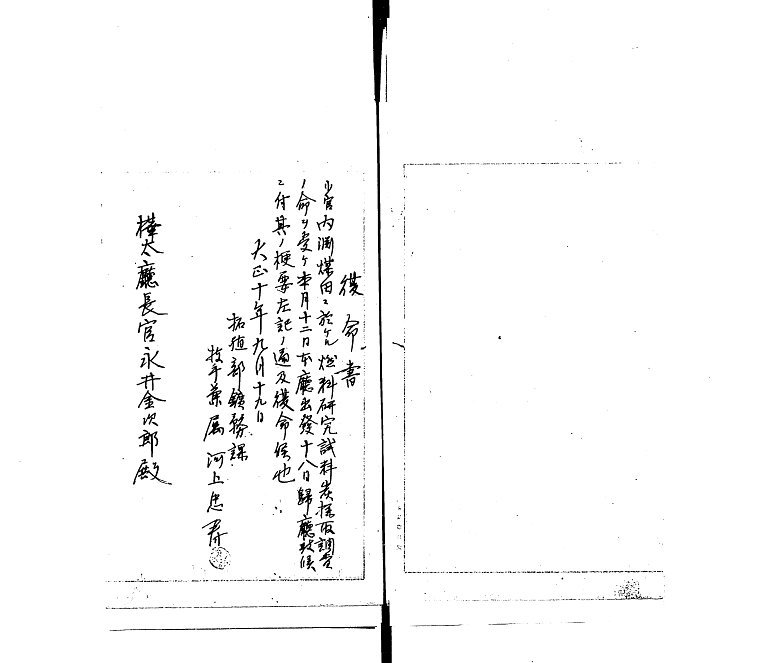 復命書
小官内淵煤田ニ於ケル燃料研究試料炭採取調査
ノ命ヲ受ケ本月十二日本廳出發十八日歸廳致候
ニ付其ノ梗要左記ノ通及復命候也
大正十年九月十九日
拓殖部鑛務課
技手兼属 河上忠寿
樺太廳長官永井金次郎殿